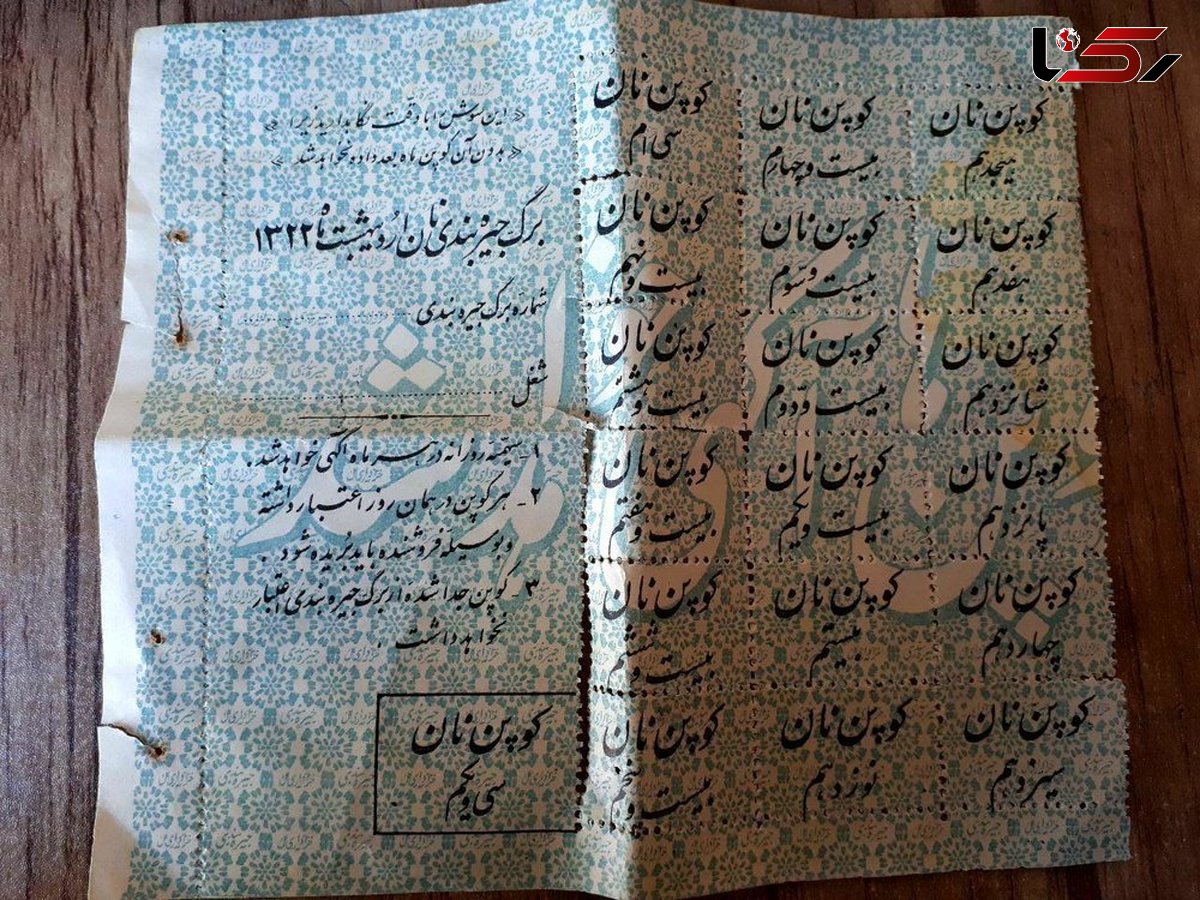 رکنا
« این سوش را با دقت نگاهدارید زیرا »
« بدون آن کوپن ماه بعد داده نخواهد شد »
برگ جیره بندی نان اردیبهشت ماه ۱۳۲۲
شماره برگ جیره بندی
شغل
۱- سهمیه روزانه در هر ماه آگهی خواهد شد .
۲- هر کوپن در همان روز اعتبار داشته
و بوسیله فروشنده باید بریده شود .
۳- کوپن جدا شده از برگ جیره بندی اعتبار
نخواهد داشت .
کوپن نان
سی و یکم
کوپن نان
هیجدهم
کوپن نان
بیست و چهارم
کوپن نان
سی ام
کوپن نان
هفدهم
کوپن نان
بیست و سوم
کوپن نان
بیست و نهم
کوپن نان
شانزدهم
کوپن نان
بیست و دوم
کوپن نان
بیست و هشتم
کوپن نان
پانزدهم
کوپن نان
بیست و یکم
کوپن نان
بیست و هفتم
کوپن نان
چهاردهم
کوپن نان
بیستم
کوپن نان
بیست و ششم
کوپن نان
سیزدهم
کوپن نان
نوزدهم
کوپن نان
بیست و پنجم